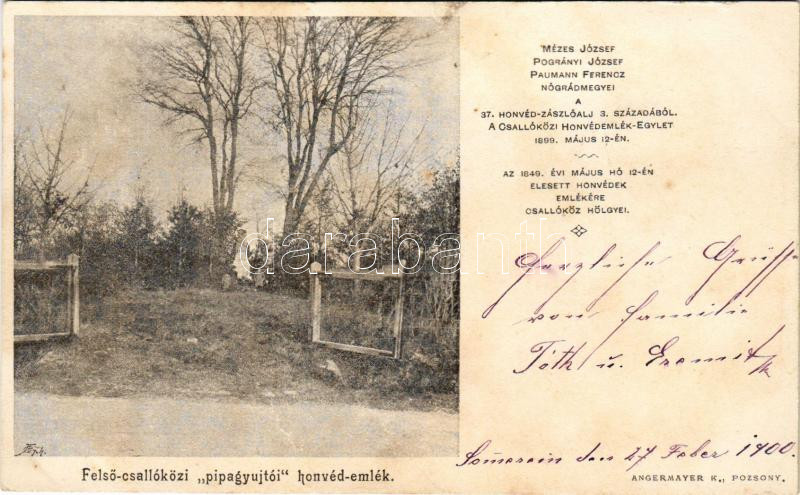 MÉZES JÓZSEF
POGRÁNYI JÓZSEF
PAUMANN FERENCZ
NÓGRÁDMEGYEI
A
37. HONVÉD-ZÁSZLÓALJ 3. SZÁZADÁBÓL.
A CSALLÓKÖZI HONVÉDEMLÉK-EGYLET
1899. MÁJUS 12-ÉN.
AZ 1849. ÉVI MÁJUS HÓ 12-ÉN
ELESETT HONVÉDEK
EMLÉKÉRE
CSALLÓKÖZ HÖLGYEI.
darabanth.com
Herzliche Grüsse
von Familie
Tóth u.
Somerein den 27 1900
Felső-csallóközi „pipagyujtói" honvéd-emlék.
ANGERMAYER K., POZSONY.